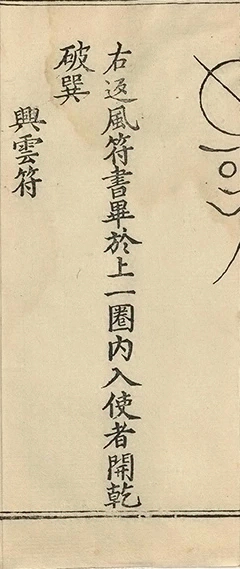 右返風符書畢於上一圈內入使者開乾
破巽
興雲符